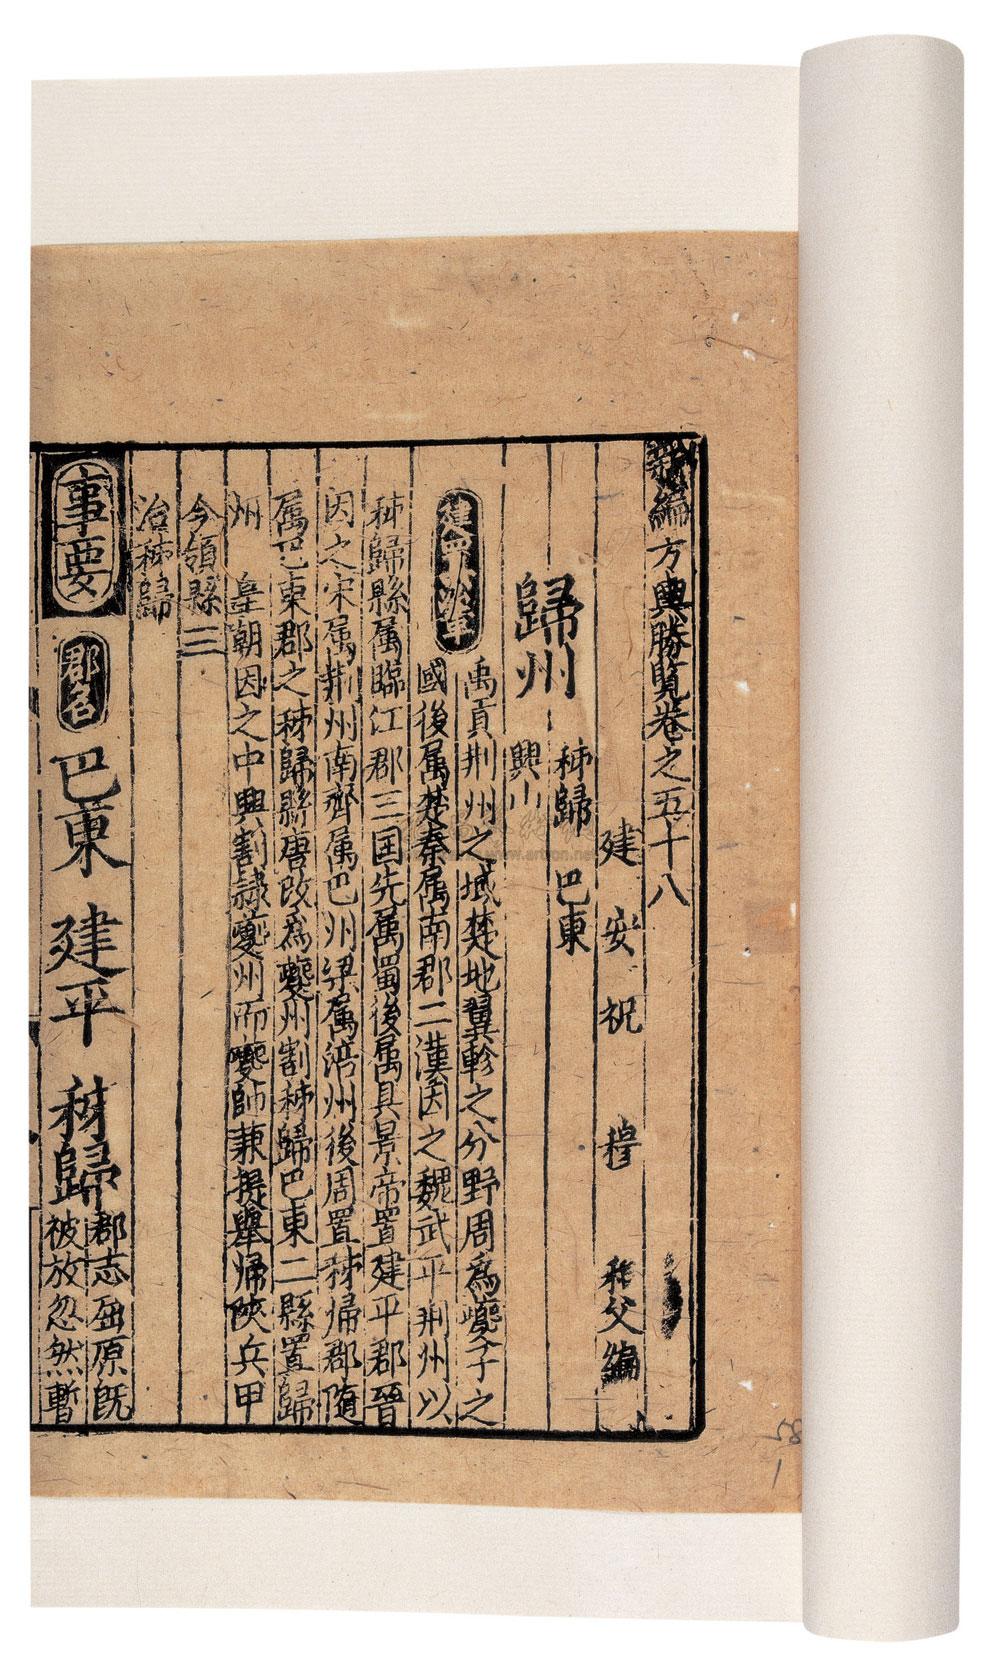 新編方輿勝覽卷之五十八
建安祝穆和父編
秭歸 巴東
歸州
興山
建置沿革
禹貢荆州之域楚地翼軫之分野周爲夔子之
國後属楚秦属南郡二漢因之魏武平荆州以
秭歸縣属臨江郡三囯先属蜀後属吳景帝置建平郡晉
因之宋属荆州南齊属巴州梁属涪州後周置秭帰郡隋
属巴東郡之秭歸縣唐改爲夔州割秭歸巴東二縣置歸
州 皇朝因之中興割隸夔州而夔師兼提舉帰陝兵甲
今領縣三
治秭歸
事要
郡名
巴東 建平 秭歸
郡志屈原旣
被放忽然暫
58
1
www.artron.net